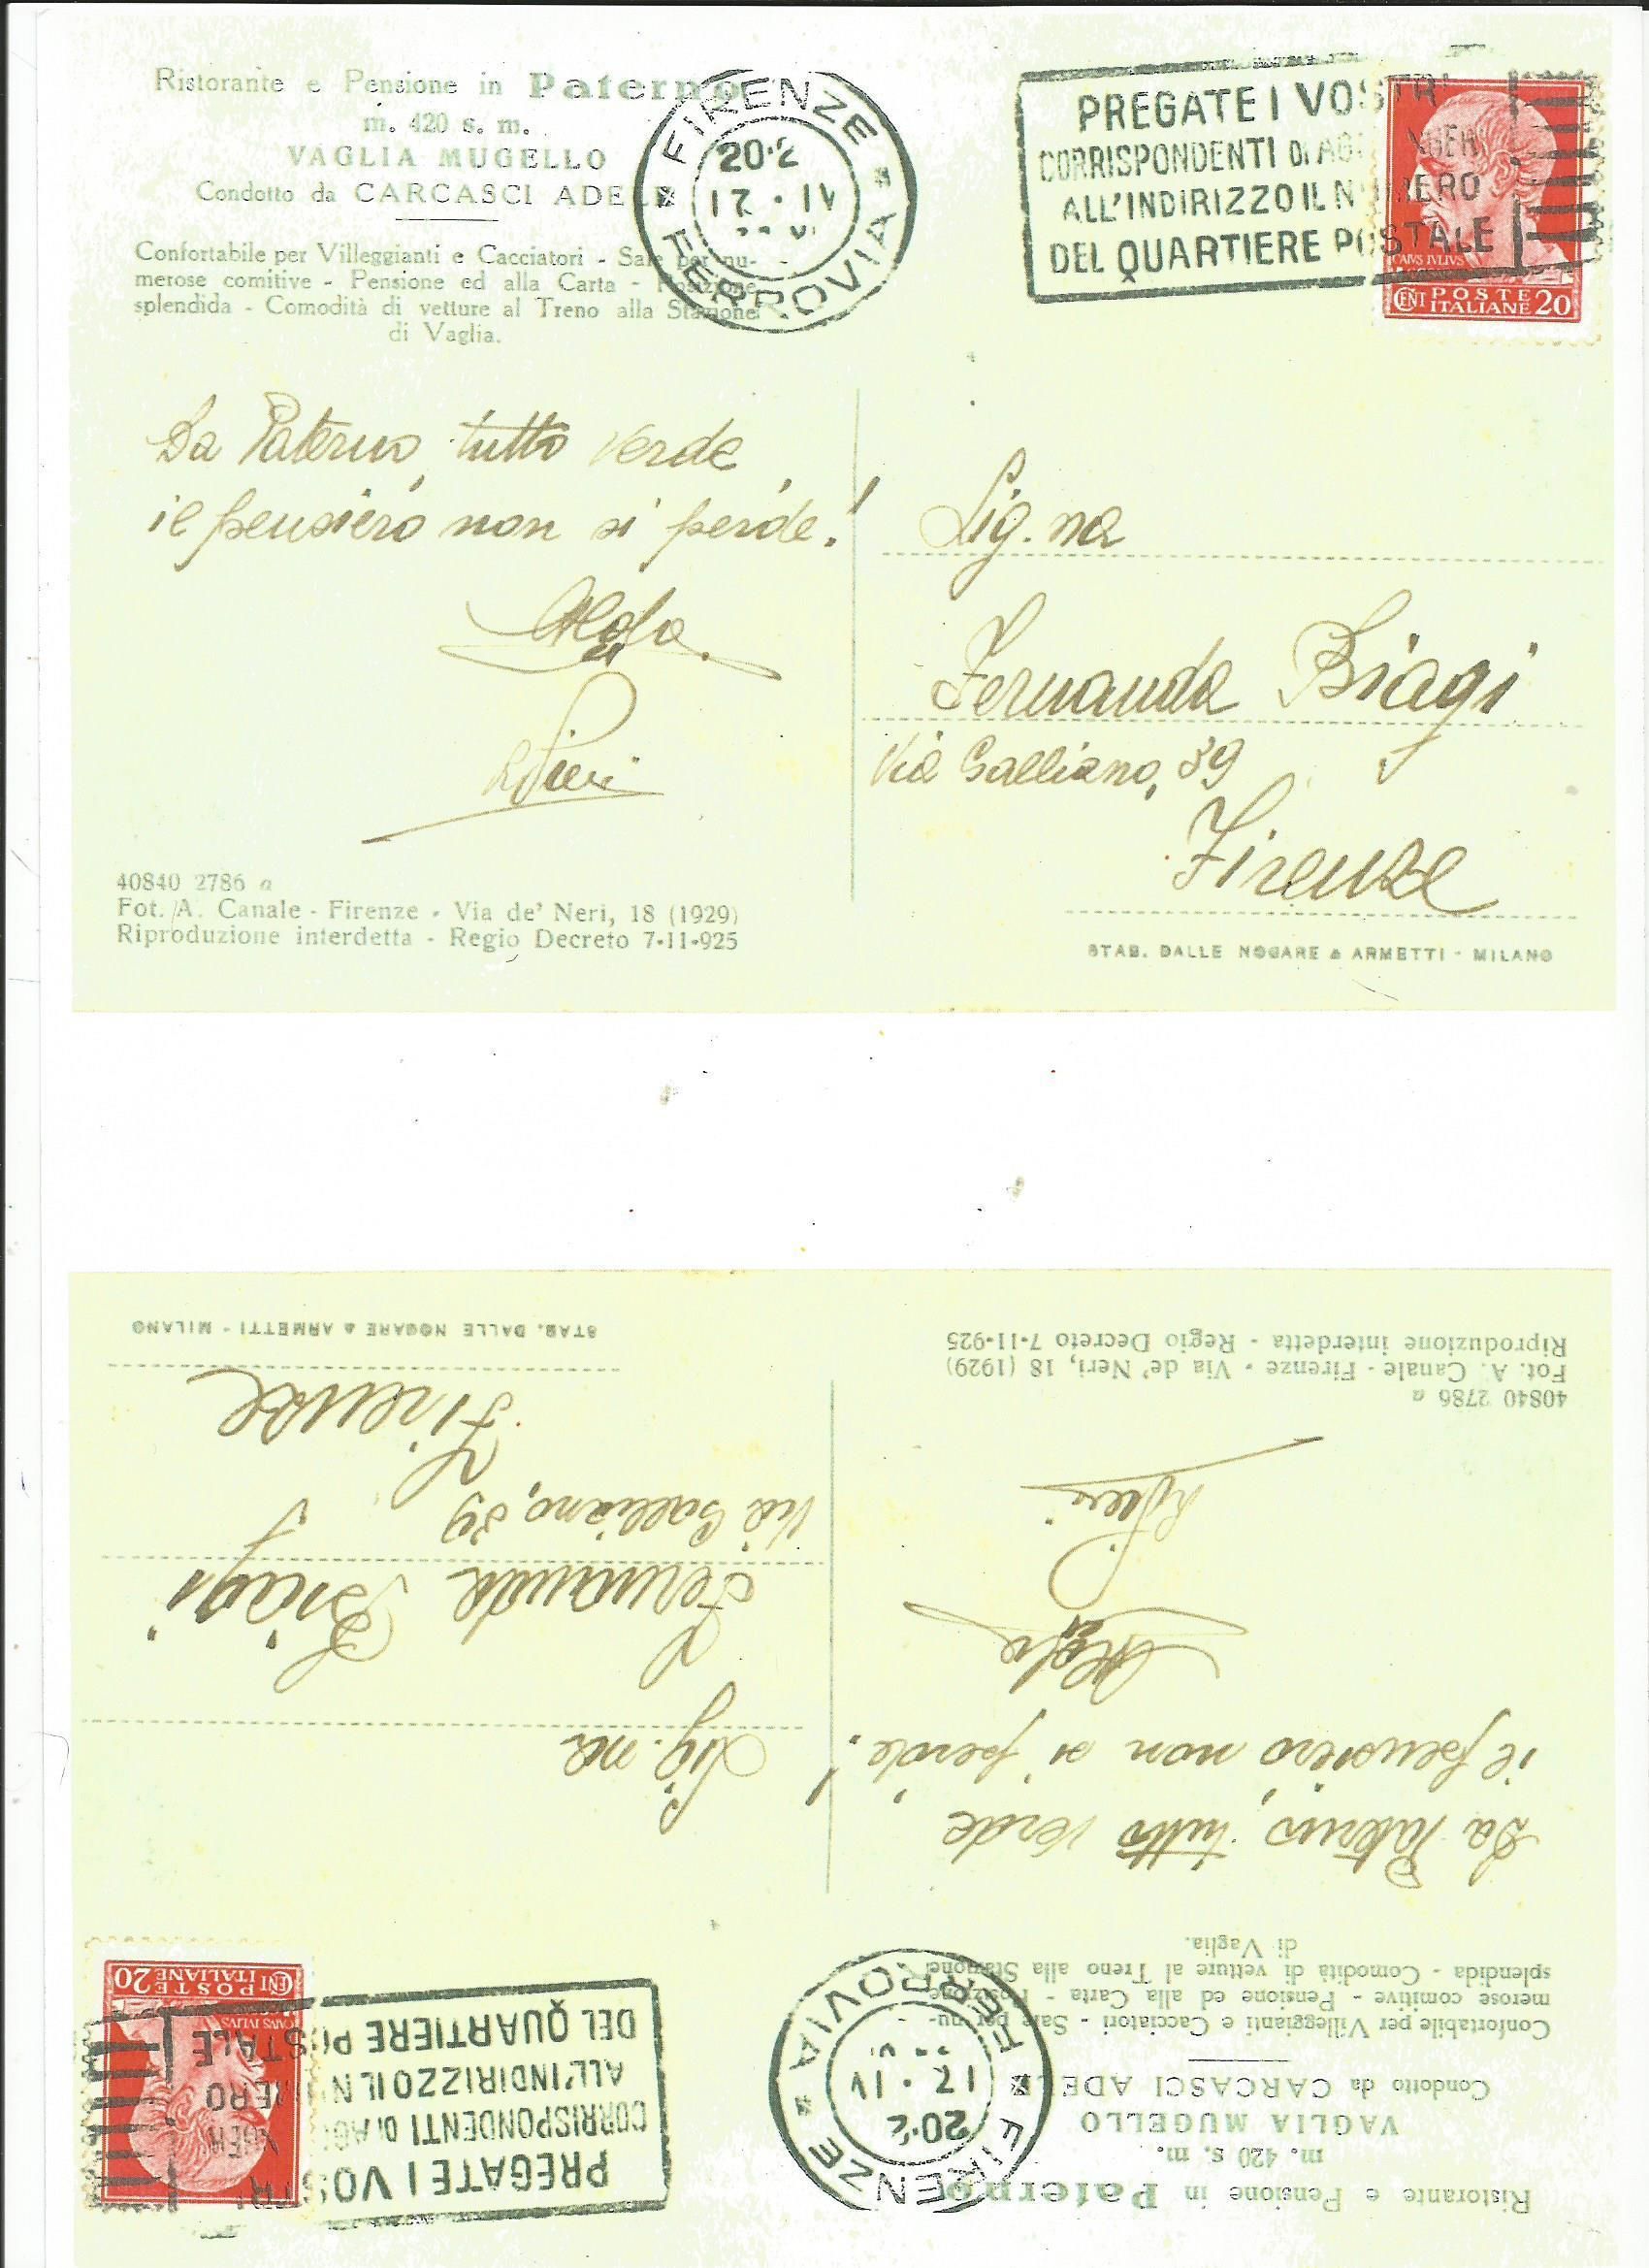 Ristorante e Pensione in Paterno
m. 420 s. m.
VAGLIA MUGELLO
Condotto da CARCASCI ADELE
Confortabile per Villeggianti e Cacciatori - Sale per nu-
merose comitive - Pensione ed alla Carta - Posizione
splendida - Comodità di vetture al Treno alla Stazione
di Vaglia.
FIRENZE
20·2
17·IV
FERROVIA
PREGATE I VOSTRI
CORRISPONDENTI DI AGGIUNGERE
ALL'INDIRIZZO IL NUMERO
DEL QUARTIERE POSTALE
CAIVS IVLIVS
CENT POSTE ITALIANE 20
Da Paterno, tutto verde,
il pensiero non si perde!
Alda
Sig.na
Fernanda Biagi
Via Galliano, 39
Firenze
40840 2786 a
Fot. A. Canale - Firenze - Via de' Neri, 18 (1929)
Riproduzione interdetta - Regio Decreto 7-11-925
STAB. DALLE NOGARE & ARMETTI - MILANO
STAB. DALLE NOGARE & ARMETTI - MILANO
Riproduzione interdetta - Regio Decreto 7-11-925
Fot. A. Canale - Firenze - Via de' Neri, 18 (1929)
40840 2786 a
Firenze
Via Galliano, 39
Fernanda Biagi
Sig.na
Alda
il pensiero non si perde!
Da Paterno, tutto verde
di Vaglia.
splendida - Comodità di vetture al Treno alla Stazione
merose comitive - Pensione ed alla Carta - Posizione
Confortabile per Villeggianti e Cacciatori - Sale per nu-
Condotto da CARCASCI ADELE
VAGLIA MUGELLO
m. 420 s. m.
Ristorante e Pensione in Paterno
FERROVIA
17·IV
20·2
FIRENZE
CENT POSTE ITALIANE 20
CAIVS IVLIVS
DEL QUARTIERE POSTALE
ALL'INDIRIZZO IL NUMERO
CORRISPONDENTI DI AGGIUNGERE
PREGATE I VOSTRI